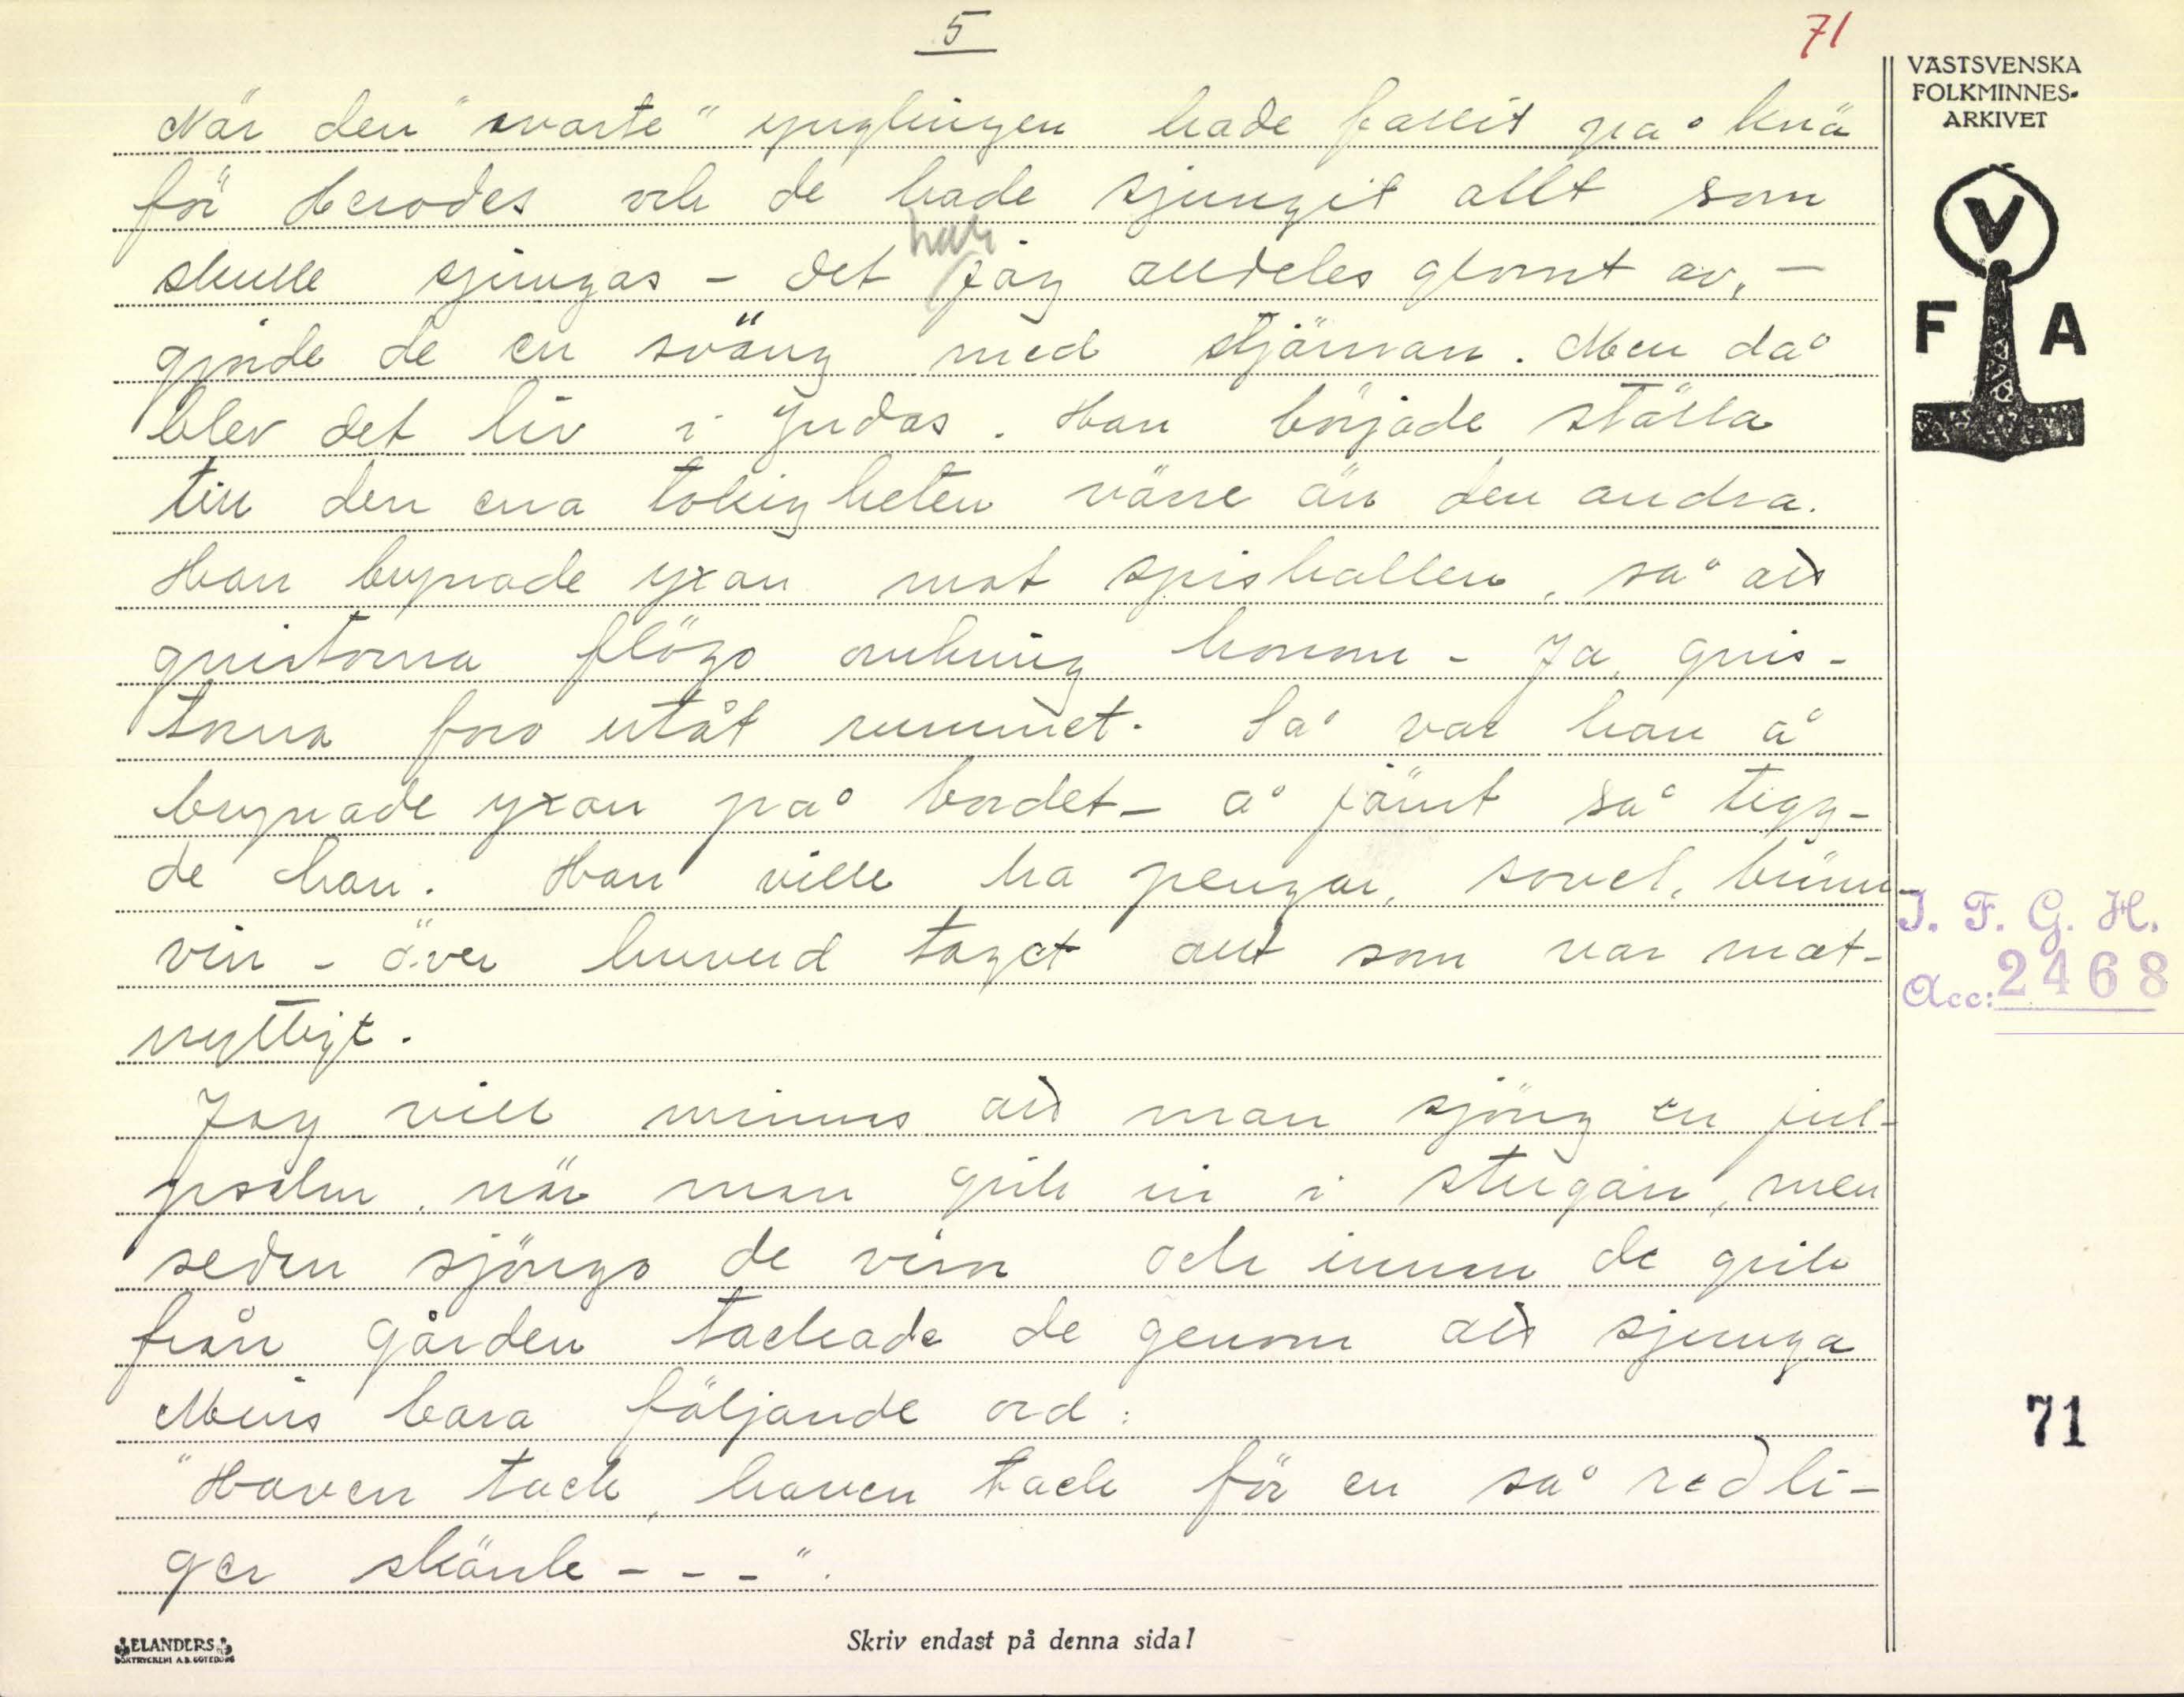 5
71
VÄSTSVENSKA
FOLKMINNES-
ARKIVET
V
F A
När den "svarte" ynglingen hade fallit på knä
för Herodes och de hade sjungit allt som
har
skulle sjungas - det jag alldeles glömt av, -
gjorde de en sväng med stjärnan. Men då
blev det liv i Judas. Han började ställa
till den ena tokigheten värre än den andra.
Han brynade yxan mot spishällen, så att
gnistorna flögo omkring honom - Ja, gnis-
torna foro utåt rummet. Så var han å
brynade yxan på bordet - å jämt så tigg-
de han. Han ville ha pengar, sovel, bränn-
vin - över huvud taget allt som var mat-
nyttigt.
Jag vill minnas att man sjöng en jul-
psalm, när man gick in i stugan, men
sedan sjöngo de visor och innan de gick
från gården tackade de genom att sjunga
Minns bara följande ord:
"Haven tack, haven tack för en så redli-
ger skänk - - -".
J. F. G. H.
Acc: 2468
71
ELANDERS
BOKTRYCKERI A.B. GÖTEBORG
Skriv endast på denna sida!